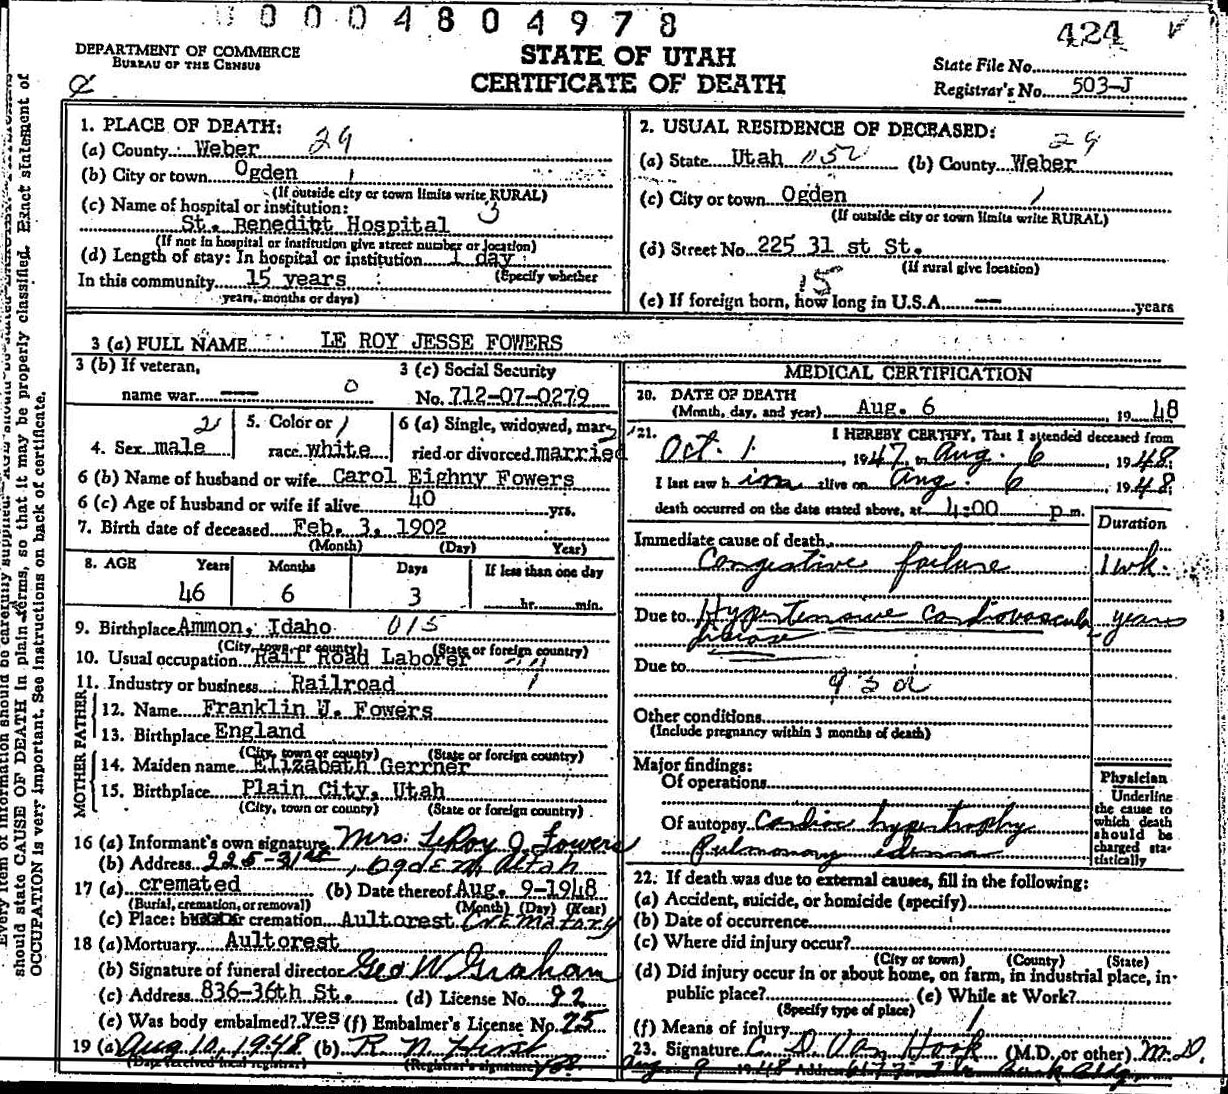 00004804978
424
DEPARTMENT OF COMMERCE
BUREAU OF THE CENSUS
STATE OF UTAH
CERTIFICATE OF DEATH
State File No.
Registrar's No. 503-J
should state CAUSE OF DEATH in plain terms, so that it may be properly classified. Exact statement of
OCCUPATION is very important. See instructions on back of certificate.
1. PLACE OF DEATH:
29
(a) County: Weber
(b) City or town Ogden
(If outside city or town limits write RURAL)
(c) Name of hospital or institution:
St. Benedict Hospital
(If not in hospital or institution give street number or location)
(d) Length of stay: In hospital or institution 1 day
(Specify whether
In this community 15 years
years, months or days)
2. USUAL RESIDENCE OF DECEASED:
29
(a) State Utah (b) County Weber
(c) City or town Ogden
(If outside city or town limits write RURAL)
(d) Street No. 225 31 st St.
(If rural give location)
15
(e) If foreign born, how long in U.S.A. — years
3 (a) FULL NAME LE ROY JESSE FOWERS
3 (b) If veteran,
name war — 0
3 (c) Social Security
No. 712-07-0279
4. Sex male
5. Color or
race white
6 (a) Single, widowed, mar-
ried or divorced married
6 (b) Name of husband or wife Carol Eighny Fowers
6 (c) Age of husband or wife if alive 40 yrs.
7. Birth date of deceased Feb. 3, 1902
(Month) (Day) Year)
8. AGE Years Months Days If less than one day
46 6 3 hr. min.
9. Birthplace Ammon, Idaho 015
(City, town or county) (State or foreign country)
10. Usual occupation Rail Road Laborer
11. Industry or business Railroad
FATHER
12. Name Franklin J. Fowers
13. Birthplace England
(City, town or county) (State or foreign country)
MOTHER
14. Maiden name Elizabeth Gerrner
15. Birthplace Plain City, Utah
(City, town or county) (State or foreign country)
16 (a) Informant's own signature Mrs. LeRoy J. Fowers
(b) Address 225-31st, Ogden, Utah
17 (a) cremated (b) Date thereof Aug. 9-1948
(Burial, cremation, or removal) (Month) (Day) (Year)
(c) Place: burial or cremation Aultorest Crematory
18 (a) Mortuary Aultorest
(b) Signature of funeral director Geo W Graham
(c) Address 836-36th St. (d) License No. 92
(e) Was body embalmed? yes (f) Embalmer's License No. 75
19 (a) Aug 10, 1948 (b) R N Hirst
(Date received local registrar) (Registrar's signature)
MEDICAL CERTIFICATION
20. DATE OF DEATH
(Month, day, and year) Aug. 6 19 48
21. I HEREBY CERTIFY, That I attended deceased from
Oct. 1, 1947, to Aug. 6 1948
I last saw him alive on Aug. 6 1948
death occurred on the date stated above, at 4:00 p m.
Duration
Immediate cause of death
Congestive failure 1 wk.
Due to Hypertensive cardiovascular years
disease
Due to
93d
Other conditions
(Include pregnancy within 3 months of death)
Major findings:
Of operations
Of autopsy Cardiac hypertrophy
Pulmonary edema
Physician
Underline
the cause to
which death
should be
charged sta-
tistically
22. If death was due to external causes, fill in the following:
(a) Accident, suicide, or homicide (specify)
(b) Date of occurrence
(c) Where did injury occur?
(City or town) (County) (State)
(d) Did injury occur in or about home, on farm, in industrial place, in
public place? (e) While at Work?
(Specify type of place)
(f) Means of injury
23. Signature C. D. Van Hook (M.D. or other) M.D.
Aug 9 1948 Address Bank Bldg.